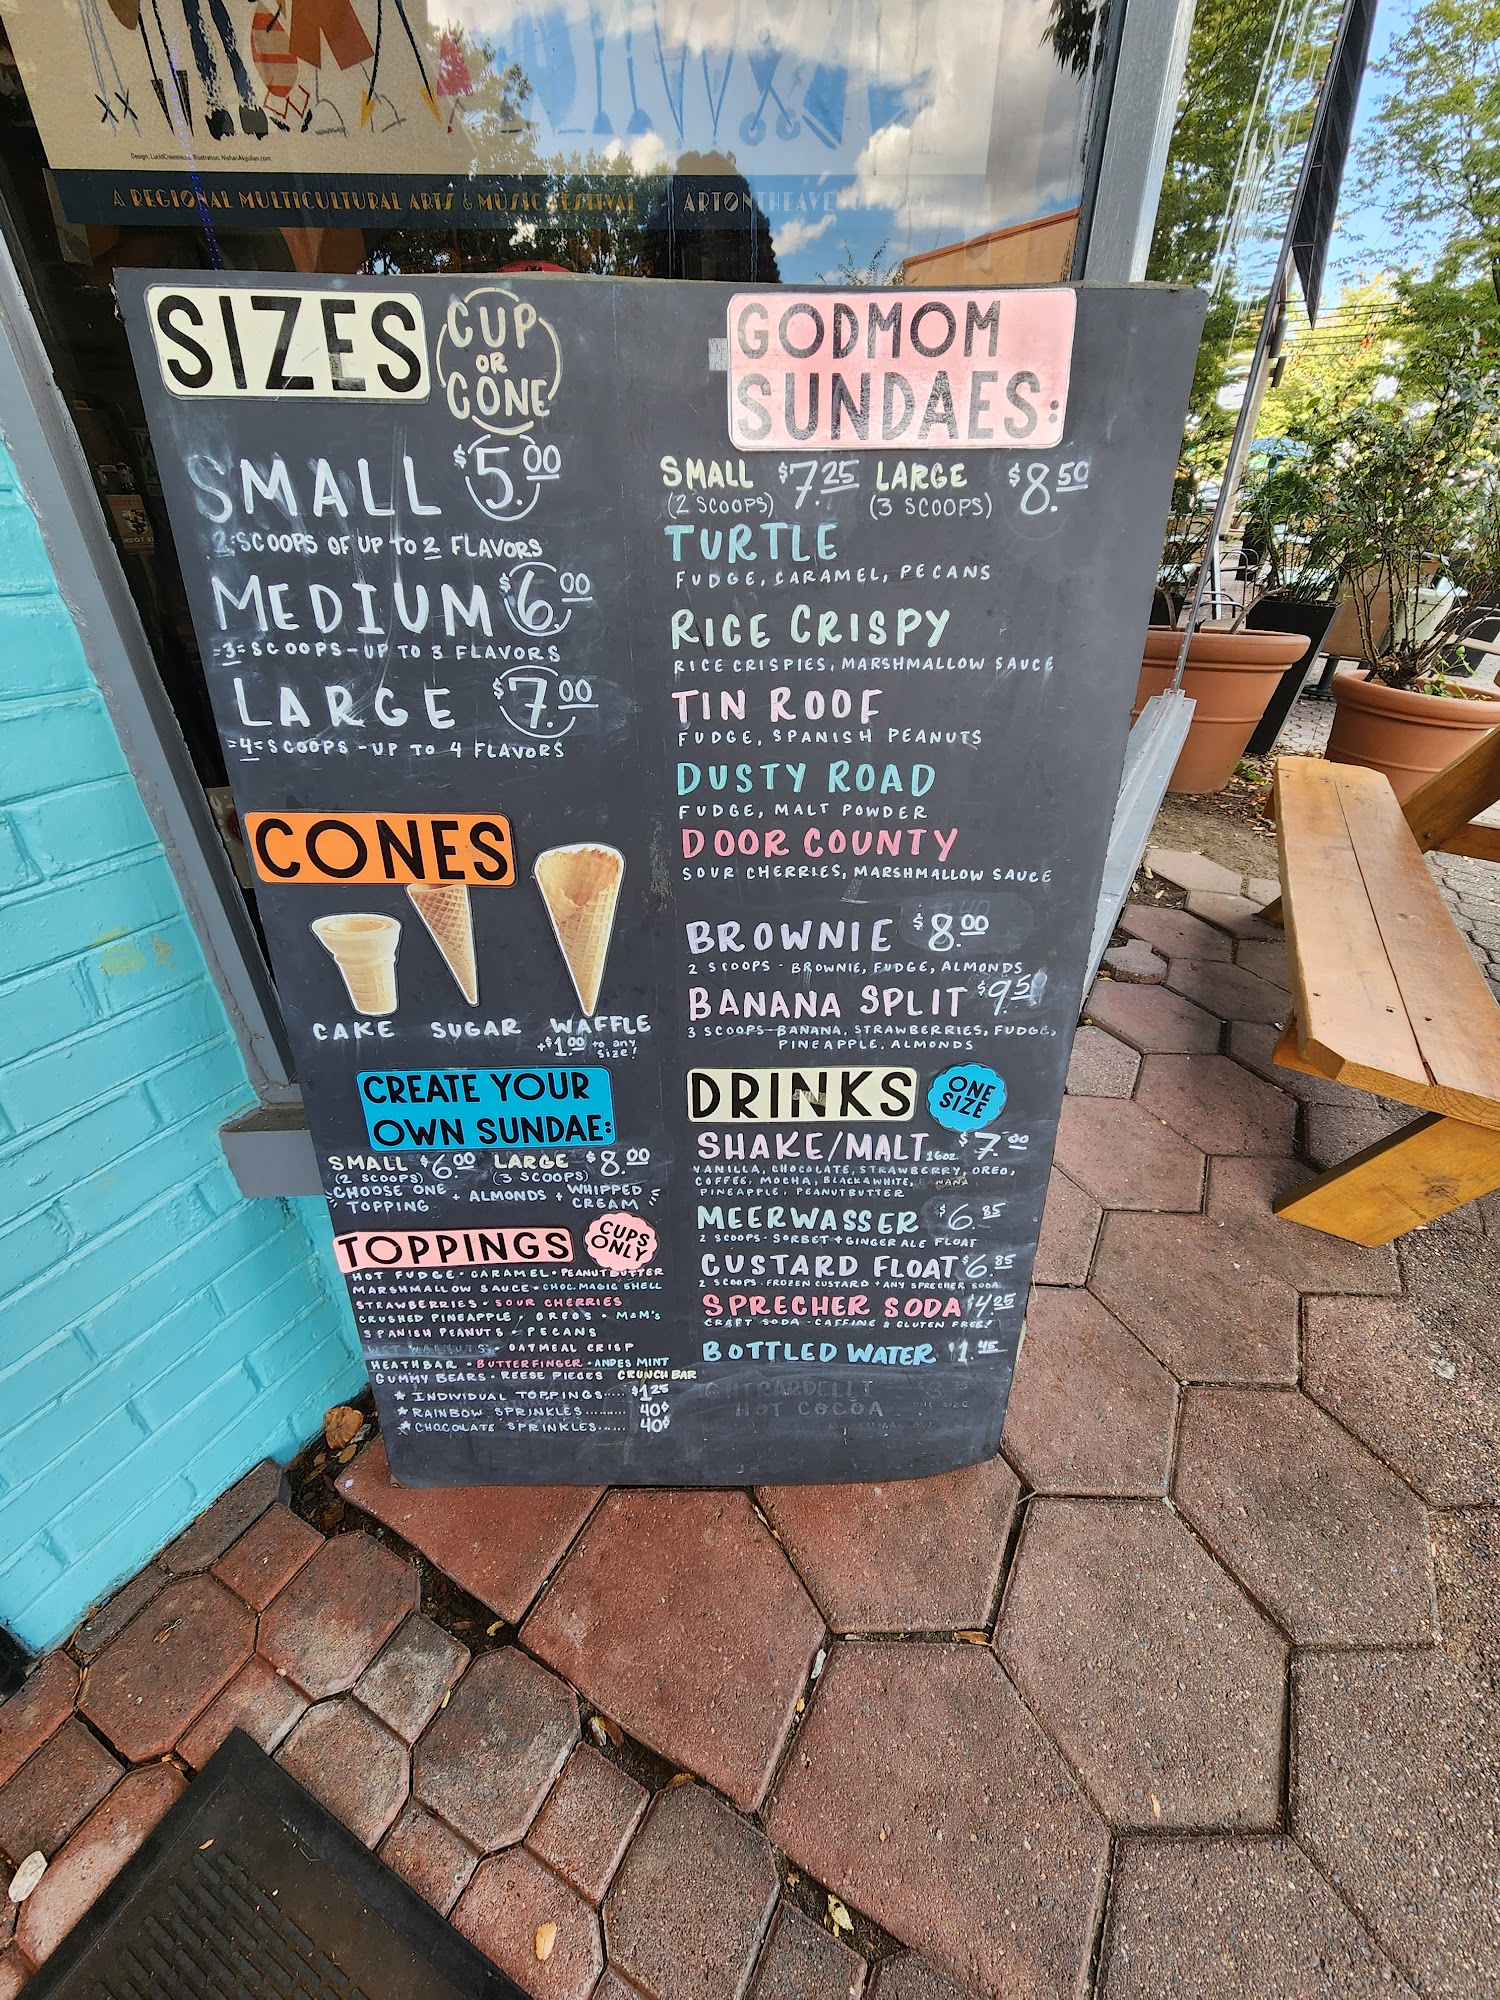 Design: LucidCreemind. Illustration: NishanAkgulian.com
A REGIONAL MULTICULTURAL ARTS & MUSIC FESTIVAL
SIZES
CUP
OR
CONE
SMALL $5.00
2 SCOOPS OF UP TO 2 FLAVORS
MEDIUM $6.00
=3= SCOOPS - UP TO 3 FLAVORS
LARGE $7.00
=4= SCOOPS - UP TO 4 FLAVORS
CONES
CAKE SUGAR WAFFLE
+$1.00 to any
size!
CREATE YOUR
OWN SUNDAE:
SMALL $6.00 LARGE $8.00
(2 SCOOPS) (3 SCOOPS)
CHOOSE ONE TOPPING + ALMONDS + WHIPPED CREAM
TOPPINGS
CUPS
ONLY
HOT FUDGE · CARAMEL · PEANUTBUTTER
MARSHMALLOW SAUCE · CHOC. MAGIC SHELL
STRAWBERRIES · SOUR CHERRIES
CRUSHED PINEAPPLE · OREOS · M&M'S
SPANISH PEANUTS · PECANS
WET WALNUTS · OATMEAL CRISP
HEATHBAR · BUTTERFINGER · ANDES MINT
GUMMY BEARS · REESE PIECES CRUNCH BAR
* INDIVIDUAL TOPPINGS..... $1.25
* RAINBOW SPRINKLES.......... 40¢
* CHOCOLATE SPRINKLES...... 40¢
GODMOM
SUNDAES:
SMALL $7.25 LARGE $8.50
(2 SCOOPS) (3 SCOOPS)
TURTLE
FUDGE, CARAMEL, PECANS
RICE CRISPY
RICE CRISPIES, MARSHMALLOW SAUCE
TIN ROOF
FUDGE, SPANISH PEANUTS
DUSTY ROAD
FUDGE, MALT POWDER
DOOR COUNTY
SOUR CHERRIES, MARSHMALLOW SAUCE
BROWNIE $8.00
2 SCOOPS - BROWNIE, FUDGE, ALMONDS
BANANA SPLIT $9.5
3 SCOOPS - BANANA, STRAWBERRIES, FUDGE,
PINEAPPLE, ALMONDS
DRINKS
ONE
SIZE
SHAKE/MALT 16oz. $7.00
VANILLA, CHOCOLATE, STRAWBERRY, OREO,
COFFEE, MOCHA, BLACK&WHITE, BANANA
PINEAPPLE, PEANUTBUTTER
MEERWASSER $6.85
2 SCOOPS - SORBET + GINGER ALE FLOAT
CUSTARD FLOAT $6.85
2 SCOOPS - FROZEN CUSTARD + ANY SPRECHER SODA
SPRECHER SODA $4.25
CRAFT SODA - CAFFINE & GLUTEN FREE!
BOTTLED WATER $1.45
GHIRARDELLI
HOT COCOA